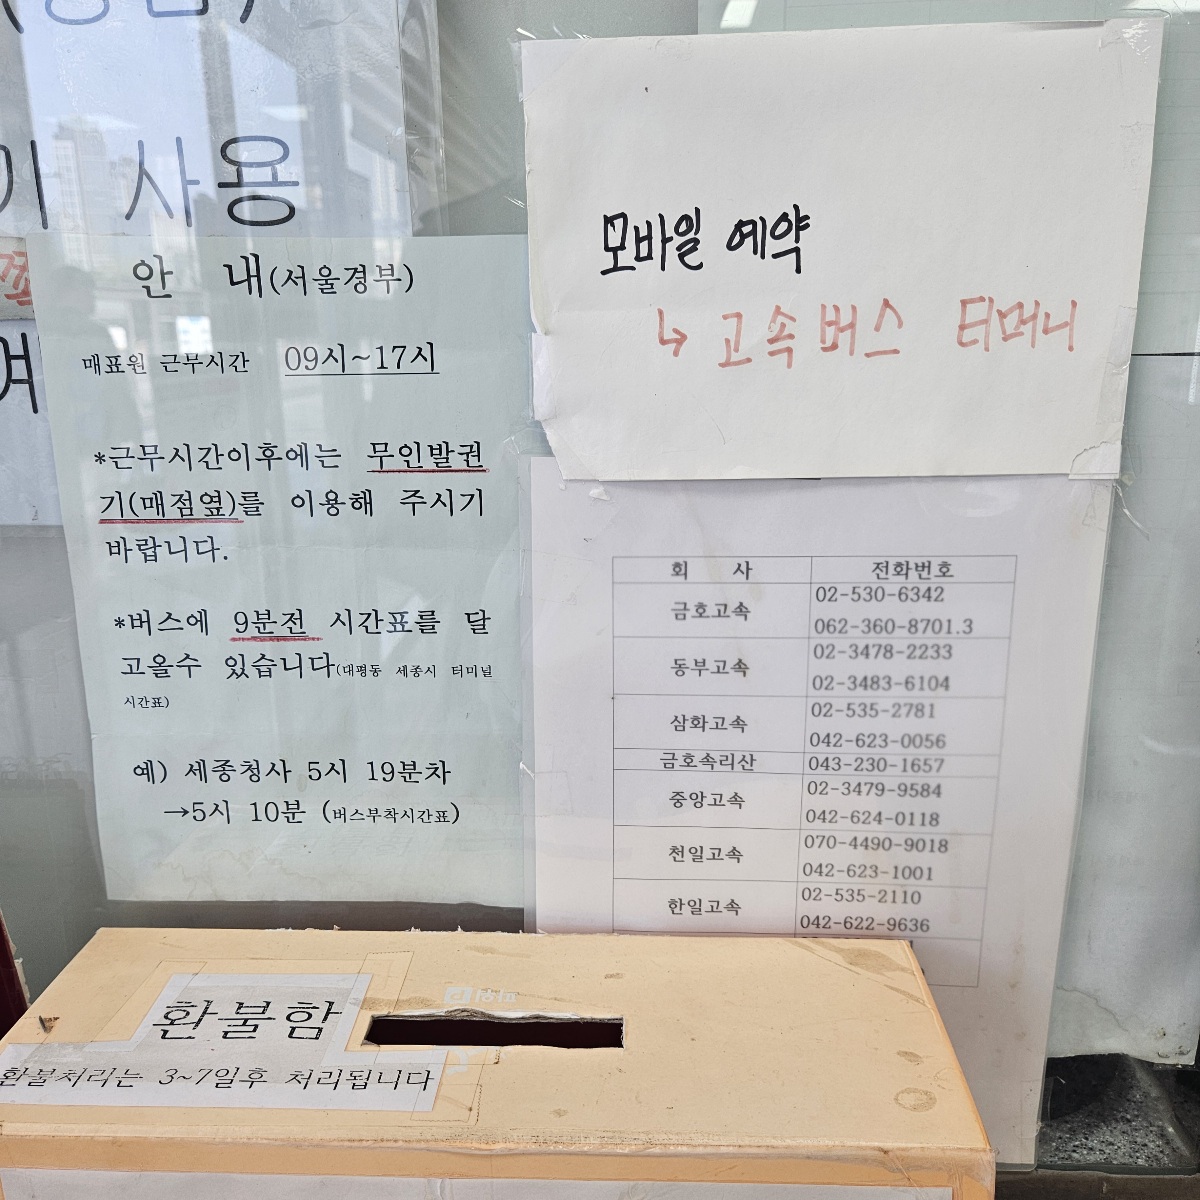 기 사용
안 내(서울경부)
매표원 근무시간 09시~17시
*근무시간이후에는 무인발권
기(매점옆)를 이용해 주시기
바랍니다.
*버스에 9분전 시간표를 달
고올수 있습니다(대평동 세종시 터미널
시간표)
예) 세종청사 5시 19분차
→5시 10분 (버스부착시간표)
모바일 예약
↳ 고속버스 티머니
회 사 전화번호
금호고속 02-530-6342
062-360-8701.3
동부고속 02-3478-2233
02-3483-6104
삼화고속 02-535-2781
042-623-0056
금호속리산 043-230-1657
중앙고속 02-3479-9584
042-624-0118
천일고속 070-4490-9018
042-623-1001
한일고속 02-535-2110
042-622-9636
환불함
환불처리는 3~7일후 처리됩니다